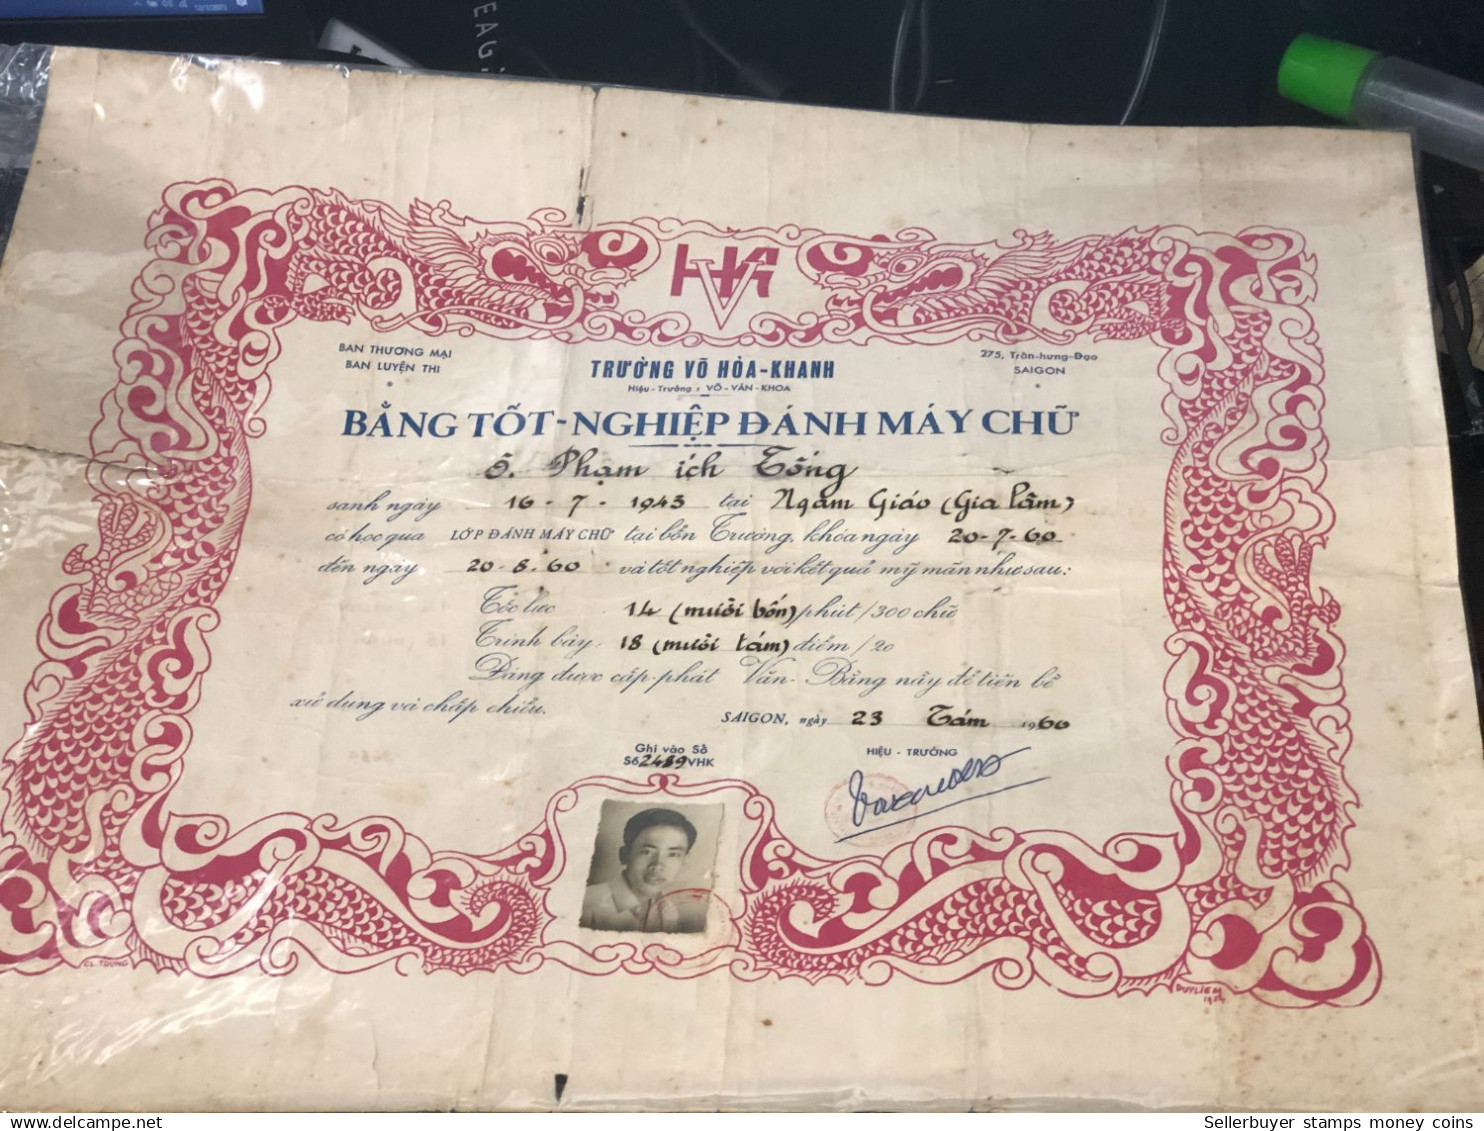 HVK
BAN THƯƠNG MẠI
BAN LUYỆN THI
TRƯỜNG VÕ HÒA-KHANH
Hiệu-Trưởng : VÕ-VĂN-KHOA
275, Trần-hưng-Đạo
SAIGON
BẰNG TỐT-NGHIỆP ĐÁNH MÁY CHỮ
Ô. Phạm ích Tống
sanh ngày 16-7-1943 tại Ngâm Giáo (Gia Lâm)
có học qua LỚP ĐÁNH MÁY CHỮ tại bổn Trường, khóa ngày 20-7-60
đến ngày 20-8-60 và tốt nghiệp với kết quả mỹ mãn như sau:
Tốc lực 14 (mười bốn) phút/300 chữ
Trình bày 18 (mười tám) điểm/20
Đáng được cấp-phát Văn-Bằng này để tiện bề
xử dụng và chấp chiếu.
SAIGON, ngày 23 Tám 1960
Ghi vào Sổ
Số 2489 VHK
HIỆU-TRƯỞNG
CL. TRUNG
DUYLIEM
Sellerbuyer stamps money coins